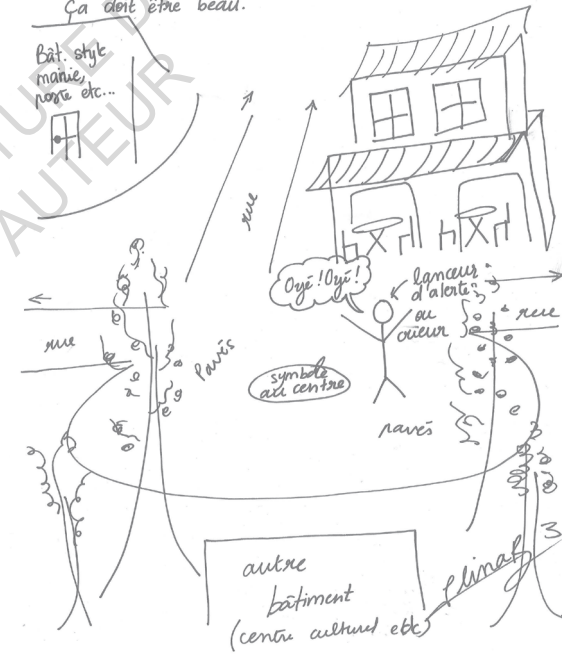 Ça doit être beau.
Bât. style
mairie,
poste etc...
TURE D
AUTEUR
rue
Oyé! Oyé!
lanceur
d'alerte?
ou
crieur
rue
rue
Pavés
symbole
au centre
pavés
autre
bâtiment
(centre culturel etc)
3